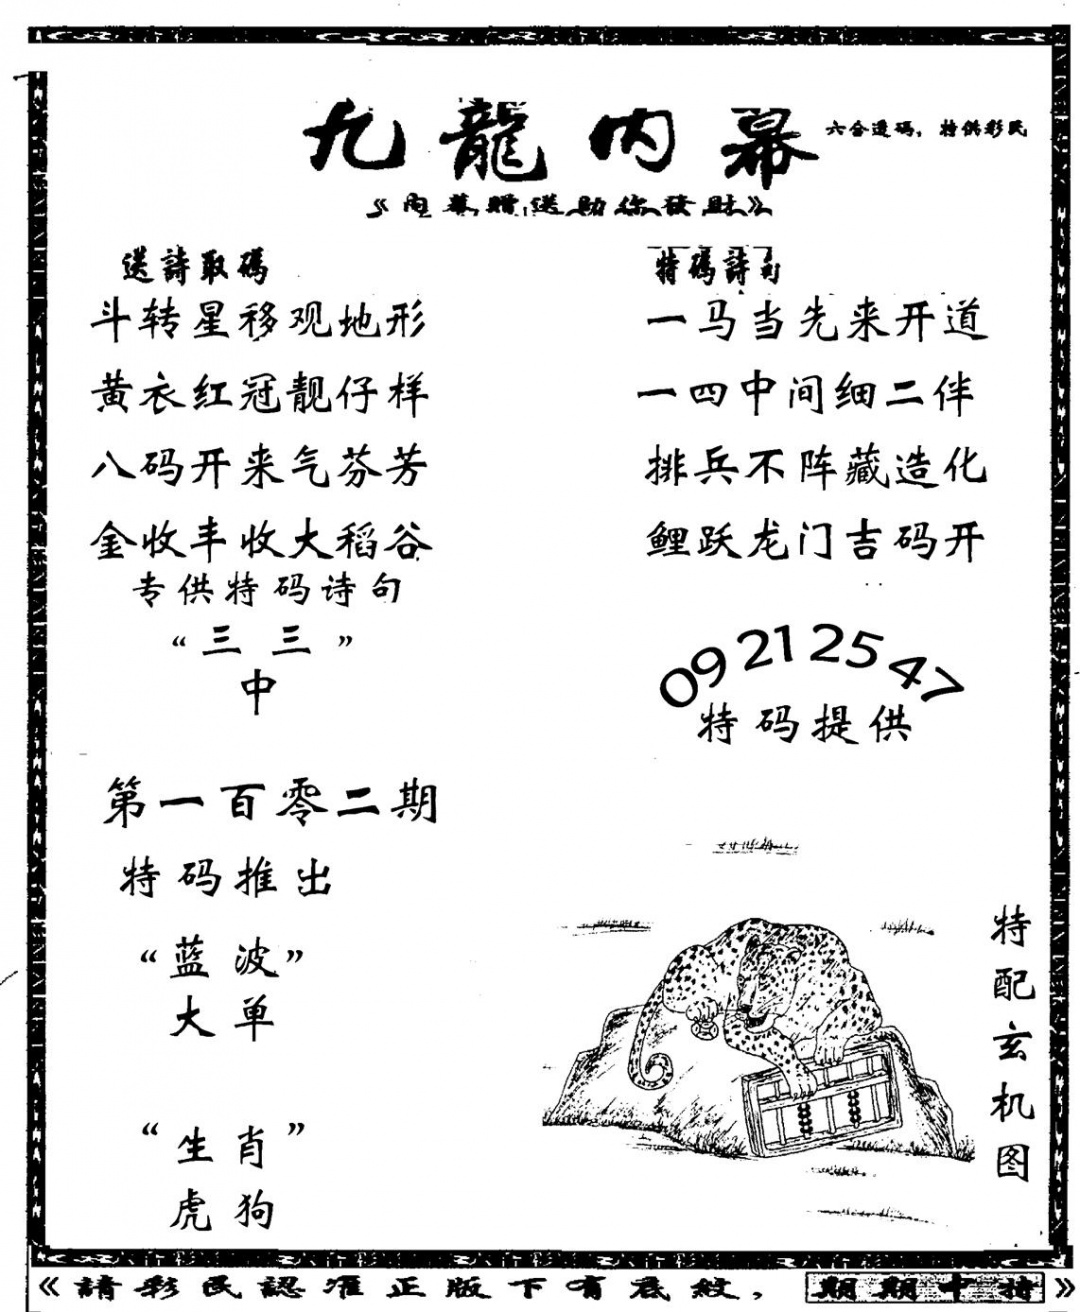 九龍内幕
六合透码，特供彩民
《內幕贈送助你發財》
送詩取碼
斗转星移观地形
黄衣红冠靓仔样
八码开来气芬芳
金收丰收大稻谷
专供特码诗句
“三三”
中
第一百零二期
特码推出
“蓝波”
大单
“生肖”
虎狗
特碼詩句
一马当先来开道
一四中间细二伴
排兵不阵藏造化
鲤跃龙门吉码开
09 21 25 47
特码提供
特配玄机图
《請彩民認准正版下有底紋，期期中特》